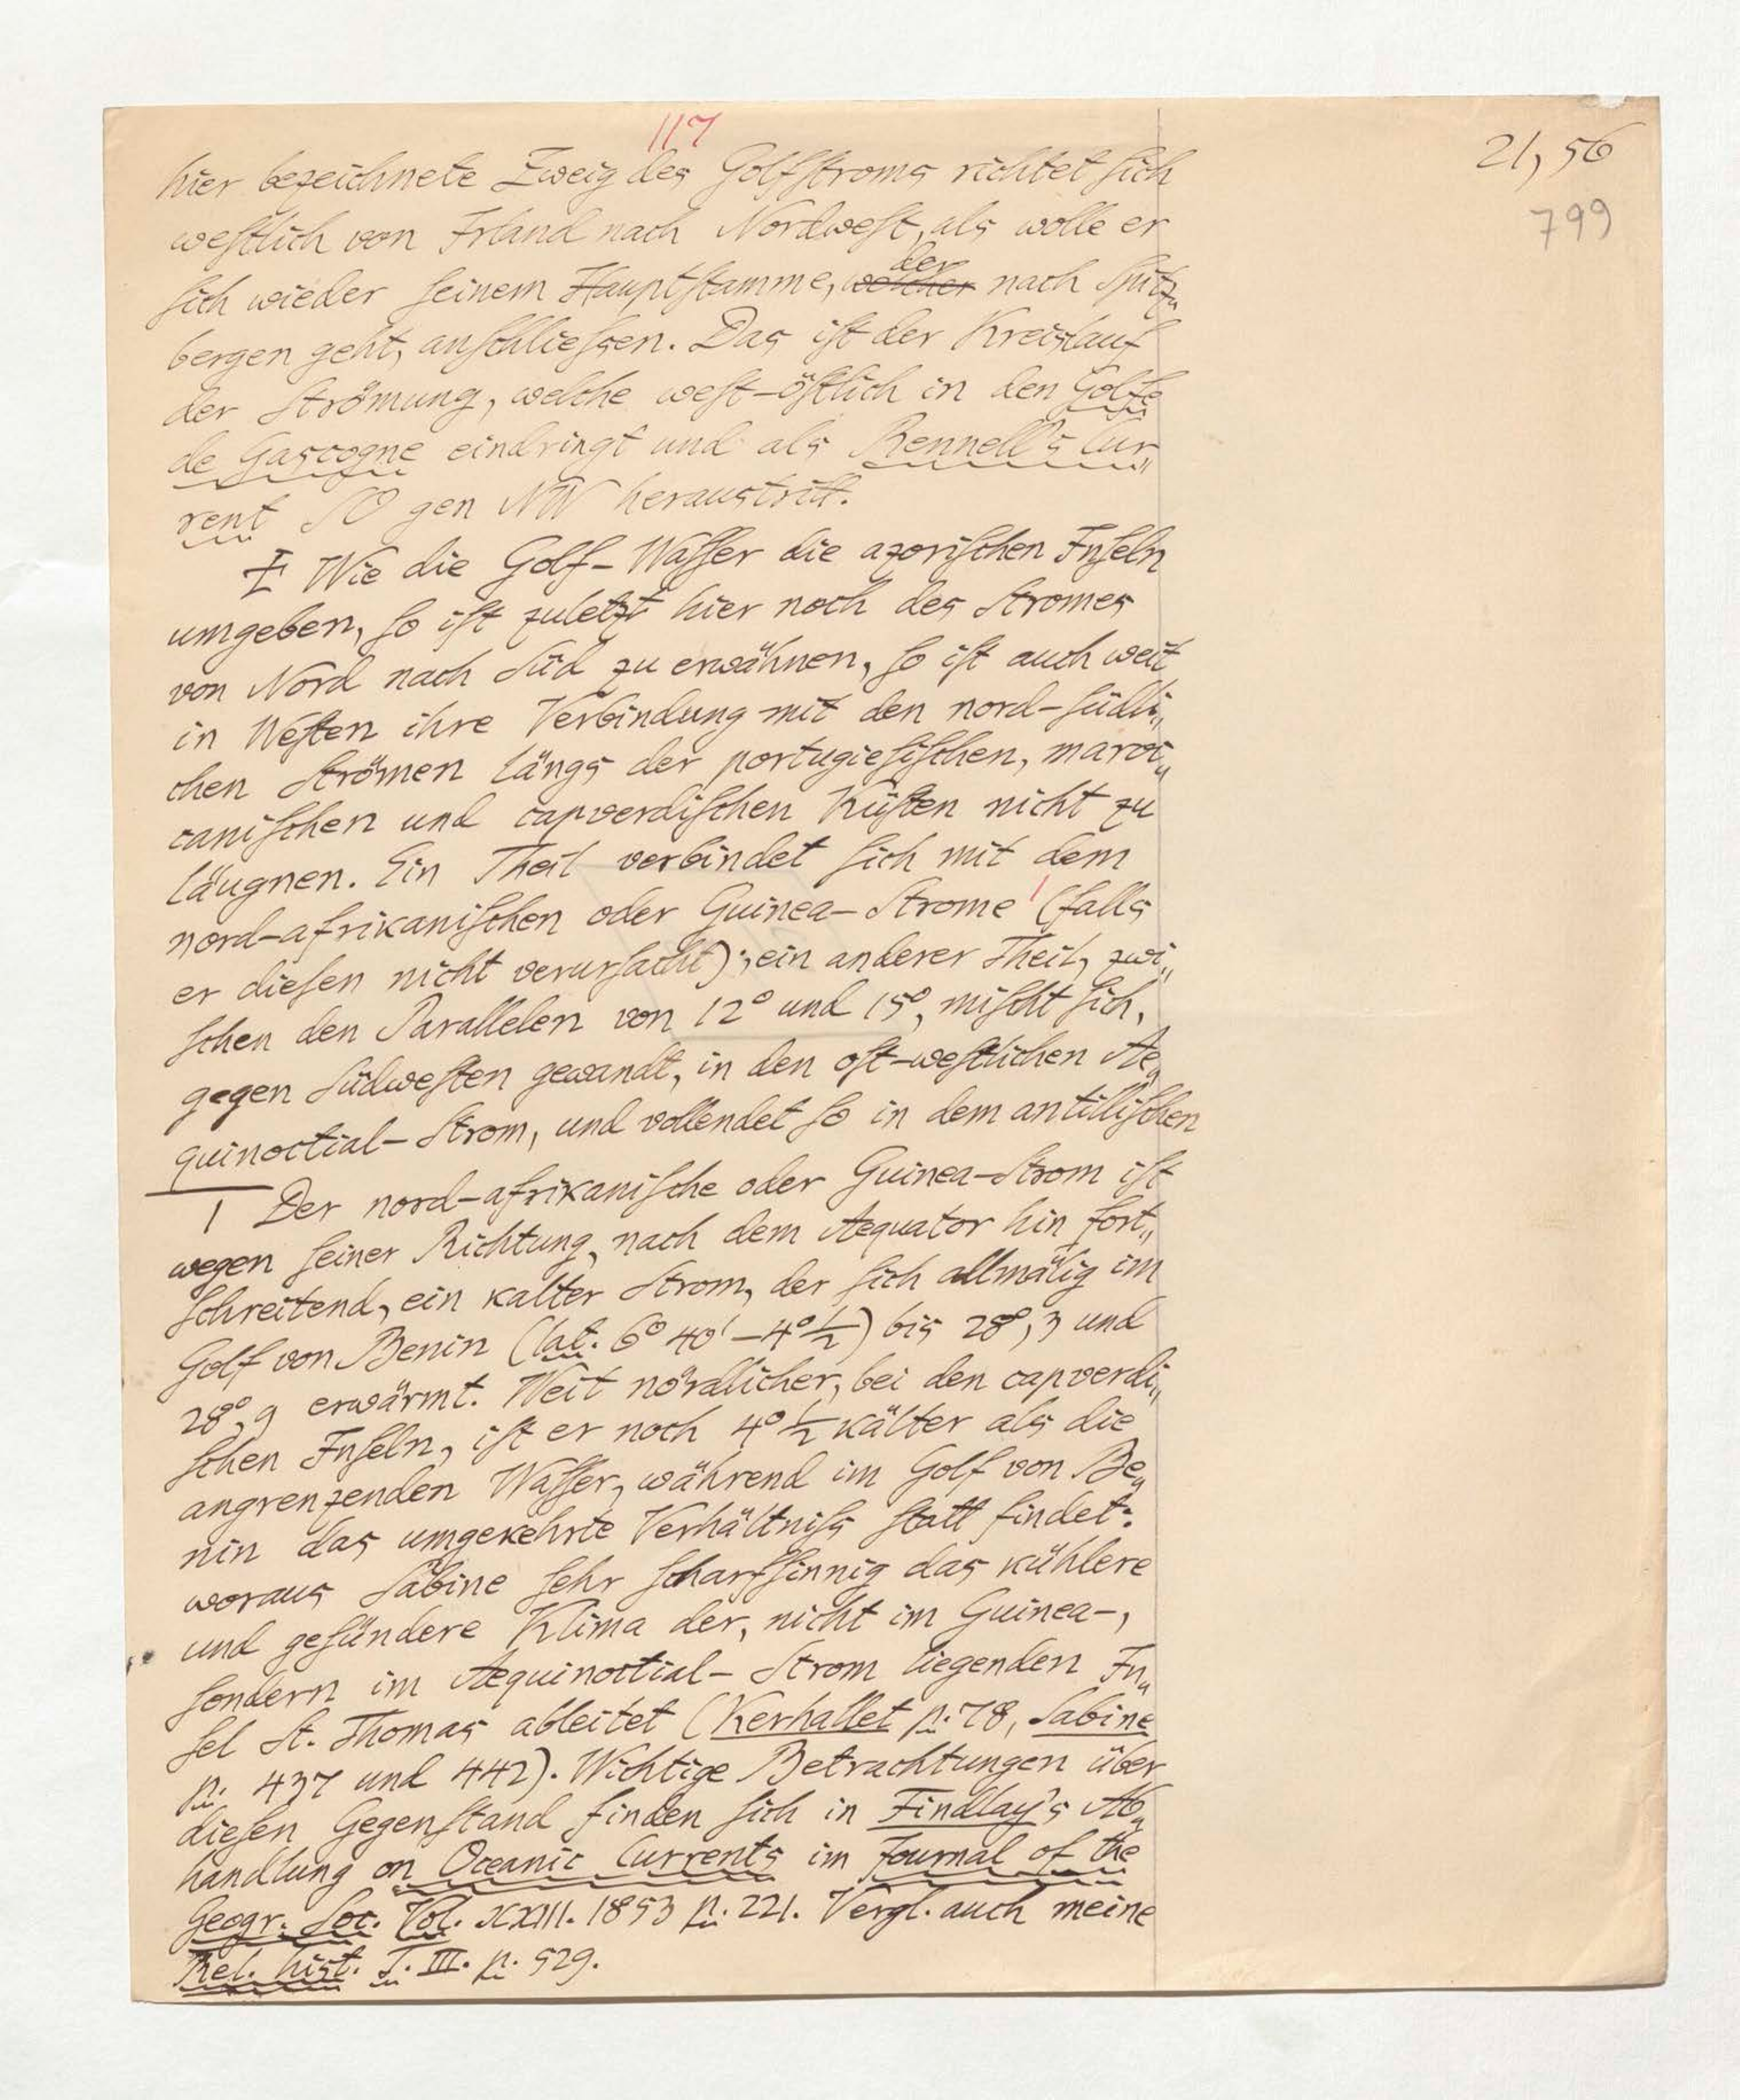 117
21, 56
799
hier bezeichnete Zweig des Golfstroms richtet sich
westlich von Irland nach Nordwest, als wolle er
der
sich wieder seinem Hauptstamme, welcher nach Spitz„
bergen geht, anschliessen. Das ist der Kreislauf
der Strömung, welche west-östlich in den Golfe
de Gascogne eindringt und als Rennell's Cur„
rent SO gen NW heraustritt.
I Wie die Golf-Wasser die azorischen Inseln
umgeben, so ist zuletzt hier noch des Stromes
von Nord nach Süd zu erwähnen, so ist auch weit
in Westen ihre Verbindung mit den nord-südli„
chen Strömen längs der portugiesischen, maroc„
canischen und capverdischen Küsten nicht zu
läugnen. Ein Theil verbindet sich mit dem
nord-afrikanischen oder Guinea-Strome 1 (falls
er diesen nicht verursacht); ein anderer Theil, zwi„
schen den Parallelen von 12° und 15°, mischt sich,
gegen Südwesten gewandt, in den ost-westlichen Ae„
quinoctial-Strom, und vollendet so in dem antillischen
1 Der nord-afrikanische oder Guinea-Strom ist
wegen seiner Richtung, nach dem Aequator hin fort„
schreitend, ein kalter Strom, der sich allmälig im
Golf von Benin (lat. 6° 40' – 4° 1/2) bis 28°, 3 und
28°, 9 erwärmt. Weit nördlicher, bei den capverdi„
schen Inseln, ist er noch 4° 1/2 kälter als die
angrenzenden Wasser, während im Golf von Be„
nin das umgekehrte Verhältniss statt findet:
woraus Sabine sehr scharfsinnig das kühlere
und gesündere Klima der, nicht im Guinea-,
sondern im Aequinoctial-Strom liegenden In„
sel St. Thomas ableitet (Kerhallet p. 78, Sabine
p. 437 und 442). Wichtige Betrachtungen über
diesen Gegenstand finden sich in Findlay's Ab„
handlung on Oceanic Currents im Journal of the
Geogr. Soc. Vol. XXIII. 1853 p. 221. Vergl. auch meine
Rel. hist. T. III. p. 529.